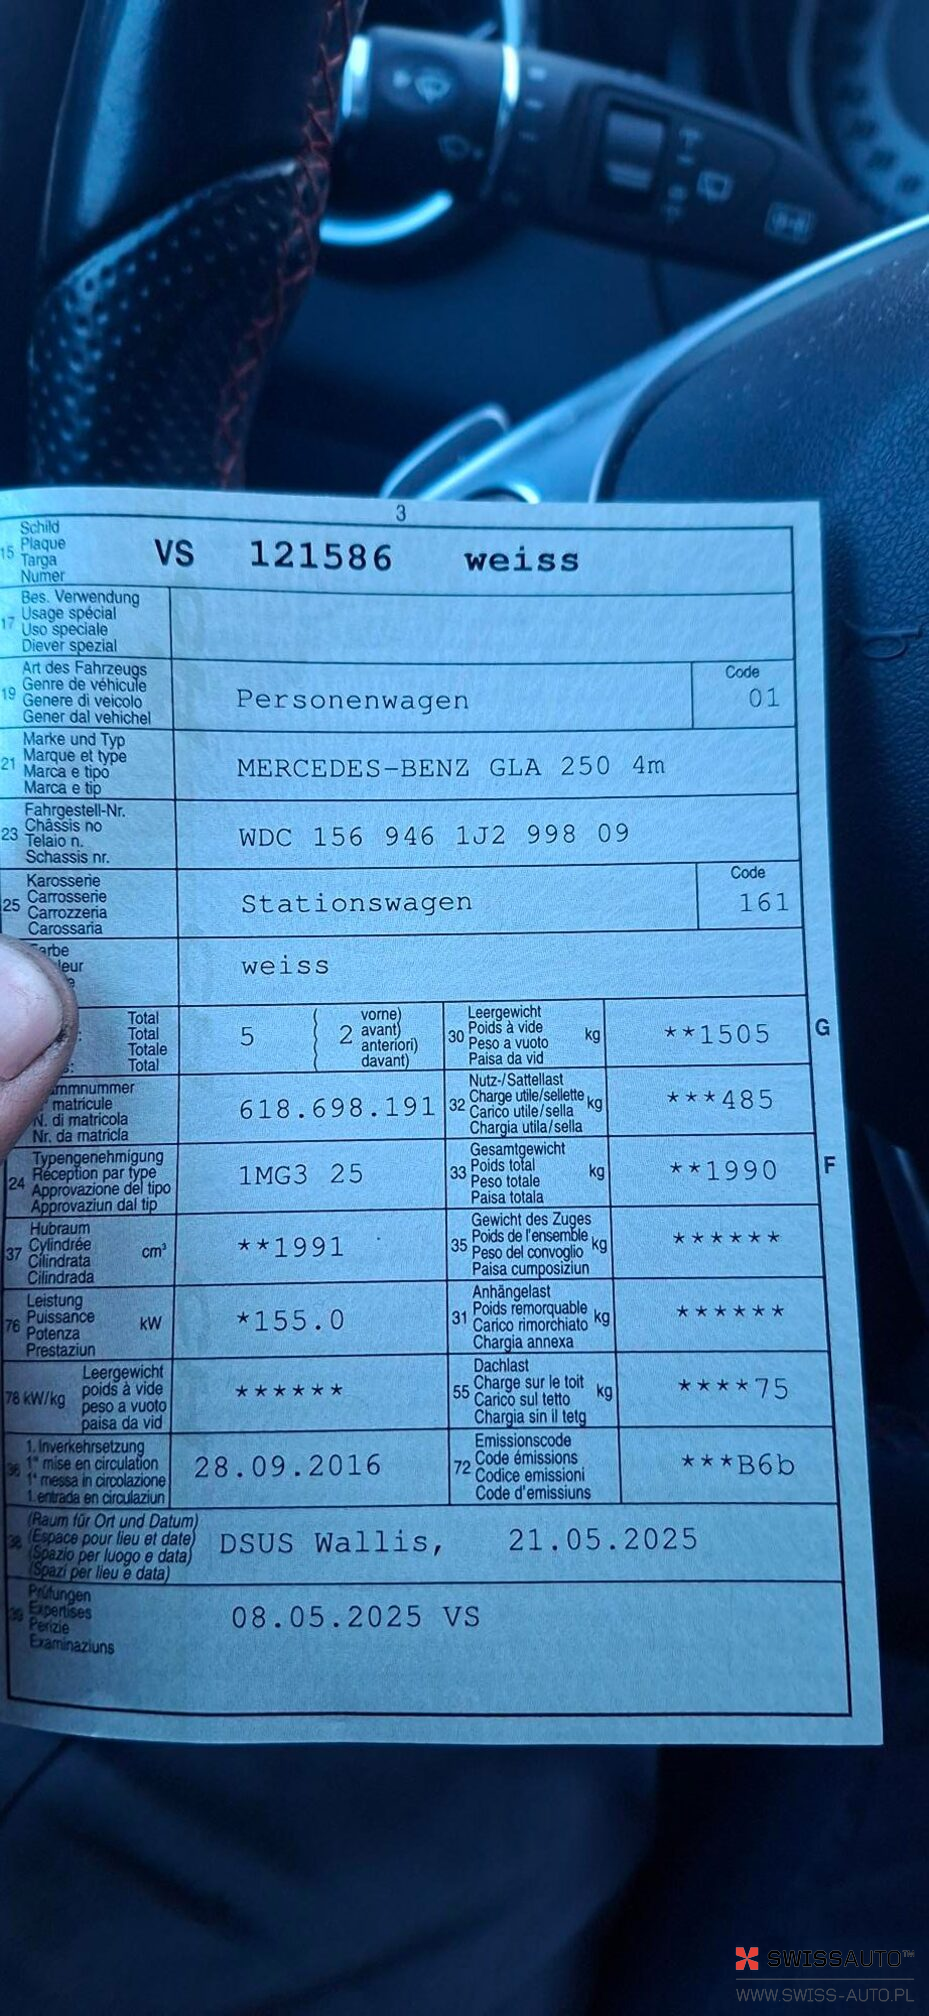 3
15 Schild
Plaque
Targa
Numer
VS 121586 weiss
17 Bes. Verwendung
Usage spécial
Uso speciale
Diever spezial
19 Art des Fahrzeugs
Genre de véhicule
Genere di veicolo
Gener dal vehichel
Personenwagen
Code
01
21 Marke und Typ
Marque et type
Marca e tipo
Marca e tip
MERCEDES-BENZ GLA 250 4m
23 Fahrgestell-Nr.
Châssis no
Telaio n.
Schassis nr.
WDC 156 946 1J2 998 09
25 Karosserie
Carrosserie
Carrozzeria
Carossaria
Stationswagen
Code
161
arbe
leur
e
weiss
Total
Total
Totale
Total
5
( 2 vorne)
avant)
anteriori)
davant)
30 Leergewicht
Poids à vide
Peso a vuoto
Paisa da vid
kg
**1505
G
mmnummer
matricule
N. di matricola
Nr. da matricla
618.698.191
32 Nutz-/Sattellast
Charge utile/sellette
Carico utile/sella
Chargia utila/sella
kg
***485
24 Typengenehmigung
Réception par type
Approvazione del tipo
Approvaziun dal tip
1MG3 25
33 Gesamtgewicht
Poids total
Peso totale
Paisa totala
kg
**1990
F
37 Hubraum
Cylindrée
Cilindrata
Cilindrada
cm³
**1991
35 Gewicht des Zuges
Poids de l'ensemble
Peso del convoglio
Paisa cumposiziun
kg
******
76 Leistung
Puissance
Potenza
Prestaziun
kW
*155.0
31 Anhängelast
Poids remorquable
Carico rimorchiato
Chargia annexa
kg
******
78 kW/kg
Leergewicht
poids à vide
peso a vuoto
paisa da vid
******
55 Dachlast
Charge sur le toit
Carico sul tetto
Chargia sin il tetg
kg
****75
36 1. Inverkehrsetzung
1re mise en circulation
1a messa in circolazione
1. entrada en circulaziun
28.09.2016
72 Emissionscode
Code émissions
Codice emissioni
Code d'emissiuns
***B6b
38 (Raum für Ort und Datum)
(Espace pour lieu et date)
(Spazio per luogo e data)
(Spazi per lieu e data)
DSUS Wallis, 21.05.2025
39 Prüfungen
Expertises
Perizie
Examinaziuns
08.05.2025 VS
SWISSAUTO™
WWW.SWISS-AUTO.PL